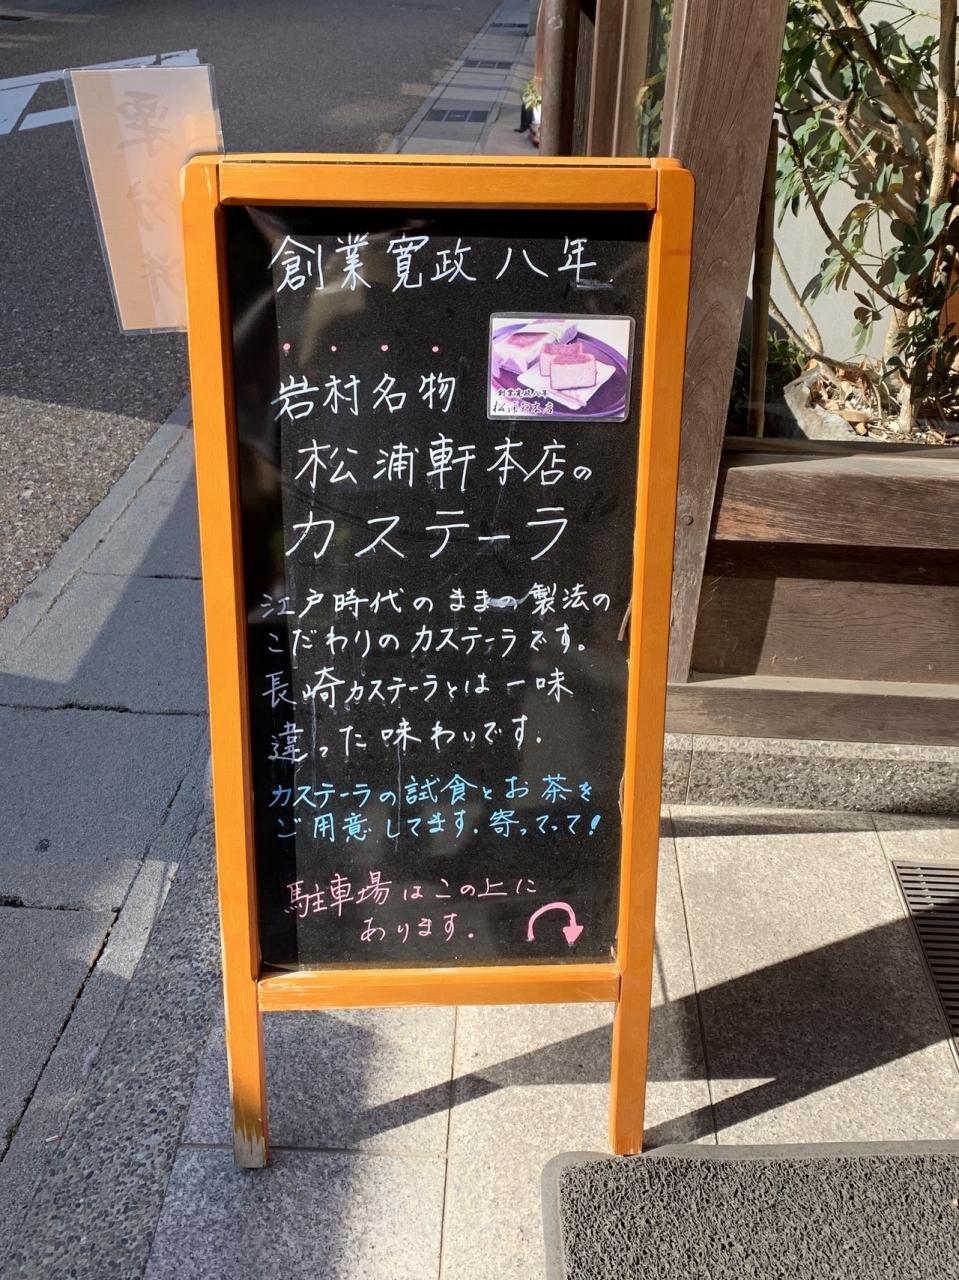 創業寛政八年
岩村名物
創業寛政八年
松浦軒本店
松浦軒本店の
カステーラ
江戸時代のままの製法の
こだわりのカステーラです。
長崎カステーラとは一味
違った味わいです.
カステーラの試食とお茶を
ご用意してます.寄ってって!
駐車場はこの上に
あります.